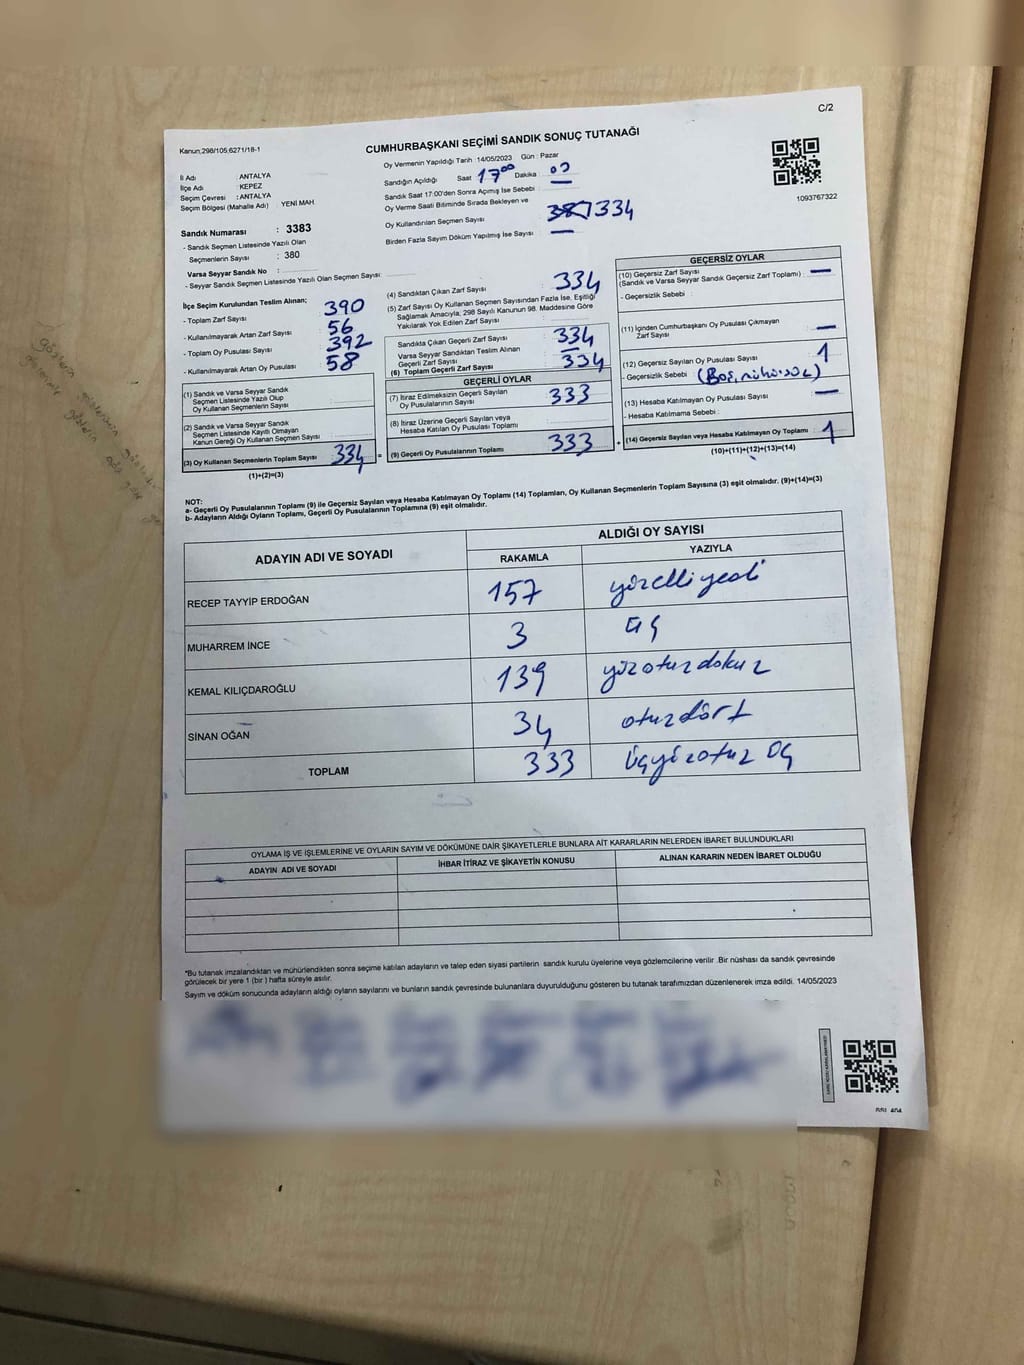 C/2
Kanun;298/105;6271/18-1
CUMHURBAŞKANI SEÇİMİ SANDIK SONUÇ TUTANAĞI
İl Adı : ANTALYA
İlçe Adı : KEPEZ
Seçim Çevresi : ANTALYA
Seçim Bölgesi (Mahalle Adı) : YENİ MAH.
Sandık Numarası : 3383
- Sandık Seçmen Listesinde Yazılı Olan
Seçmenlerin Sayısı : 380
Varsa Seyyar Sandık No :
- Seyyar Sandık Seçmen Listesinde Yazılı Olan Seçmen Sayısı:
Oy Vermenin Yapıldığı Tarih : 14/05/2023 Gün : Pazar
Sandığın Açıldığı Saat 17 00 Dakika
Sandık Saat 17:00'den Sonra Açımış İse Sebebi : —
Oy Verme Saati Bitiminde Sırada Bekleyen ve
Oy Kullandırılan Seçmen Sayısı 334
Birden Fazla Sayım Döküm Yapılmış İse Sayısı : —
1093767322
İlçe Seçim Kurulundan Teslim Alınan;
- Toplam Zarf Sayısı : 390
- Kullanılmayarak Artan Zarf Sayısı : 56
- Toplam Oy Pusulası Sayısı : 392
- Kullanılmayarak Artan Oy Pusulası : 58
(1) Sandık ve Varsa Seyyar Sandık
Seçmen Listesinde Yazılı Olup
Oy Kullanan Seçmenlerin Sayısı :
(2) Sandık ve Varsa Seyyar Sandık
Seçmen Listesinde Kayıtlı Olmayan
Kanun Gereği Oy Kullanan Seçmen Sayısı :
(3) Oy Kullanan Seçmenlerin Toplam Sayısı 334 =
(1)+(2)=(3)
(4) Sandıktan Çıkan Zarf Sayısı : 334
(5) Zarf Sayısı Oy Kullanan Seçmen Sayısından Fazla İse, Eşitliği
Sağlamak Amacıyla, 298 Sayılı Kanunun 98. Maddesine Göre
Yakılarak Yok Edilen Zarf Sayısı :
Sandıkta Çıkan Geçerli Zarf Sayısı : 334
Varsa Seyyar Sandıktan Teslim Alınan
Geçerli Zarf Sayısı : —
(6) Toplam Geçerli Zarf Sayısı : 334
GEÇERLİ OYLAR
(7) İtiraz Edilmeksizin Geçerli Sayılan
Oy Pusulalarının Sayısı : 333
(8) İtiraz Üzerine Geçerli Sayılan veya
Hesaba Katılan Oy Pusulası Toplamı :
(9) Geçerli Oy Pusulalarının Toplamı : 333 +
GEÇERSİZ OYLAR
(10) Geçersiz Zarf Sayısı
(Sandık ve Varsa Seyyar Sandık Geçersiz Zarf Toplamı) : —
- Geçersizlik Sebebi :
(11) İçinden Cumhurbaşkanı Oy Pusulası Çıkmayan
Zarf Sayısı : —
(12) Geçersiz Sayılan Oy Pusulası Sayısı : 1
- Geçersizlik Sebebi : (Boş, mühürsüz)
(13) Hesaba Katılmayan Oy Pusulası Sayısı : —
- Hesaba Katılmama Sebebi :
(14) Geçersiz Sayılan veya Hesaba Katılmayan Oy Toplamı : 1
(10)+(11)+(12)+(13)=(14)
NOT:
a- Geçerli Oy Pusulalarının Toplamı (9) ile Geçersiz Sayılan veya Hesaba Katılmayan Oy Toplamı (14) Toplamları, Oy Kullanan Seçmenlerin Toplam Sayısına (3) eşit olmalıdır. (9)+(14)=(3)
b- Adayların Aldığı Oyların Toplamı, Geçerli Oy Pusulalarının Toplamına (9) eşit olmalıdır.
ADAYIN ADI VE SOYADI ALDIĞI OY SAYISI
RAKAMLA YAZIYLA
RECEP TAYYİP ERDOĞAN 157 yüzelliyedi
MUHARREM İNCE 3 üç
KEMAL KILIÇDAROĞLU 139 yüzotuzdokuz
SİNAN OĞAN 34 otuzdört
TOPLAM 333 üçyüzotuz üç
OYLAMA İŞ VE İŞLEMLERİNE VE OYLARIN SAYIM VE DÖKÜMÜNE DAİR ŞİKAYETLERLE BUNLARA AİT KARARLARIN NELERDEN İBARET BULUNDUKLARI
ADAYIN ADI VE SOYADI İHBAR İTİRAZ VE ŞİKAYETİN KONUSU ALINAN KARARIN NEDEN İBARET OLDUĞU
*Bu tutanak imzalandıktan ve mühürlendikten sonra seçime katılan adayların ve talep eden siyasi partilerin sandık kurulu üyelerine veya gözlemcilerine verilir .Bir nüshası da sandık çevresinde
görülecek bir yere 1 (bir ) hafta süreyle asılır.
Sayım ve döküm sonucunda adayların aldığı oyların sayılarını ve bunların sandık çevresinde bulunanlara duyurulduğunu gösteren bu tutanak tarafımızdan düzenlenerek imza edildi. 14/05/2023